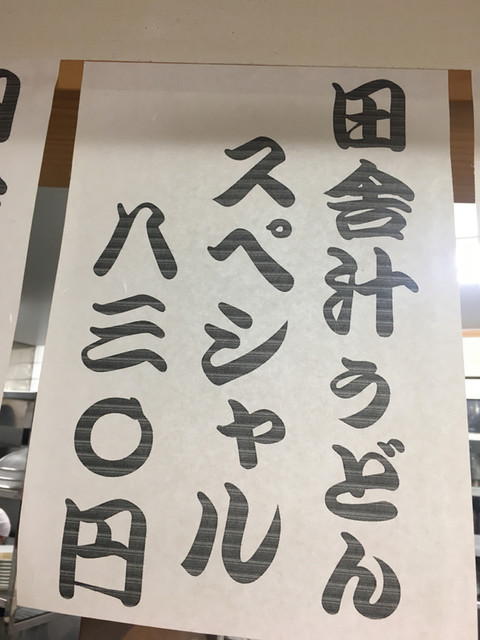 田舎汁うどん
スペシャル
八三〇円